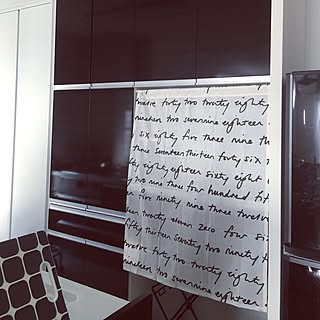 twelve forty two twenty eighty
nineteen two sevennine eighteen
six eighty five three nine
three seventeen thirteen forty six
fifty eightyeighteen sixty eight
two nine three four hundred
six five ninety nine three twelve
twenty eleven zero four
fifty thirteen seventy two ninety
twelve forty two twenty eighty
nineteen two sevennine eighteen